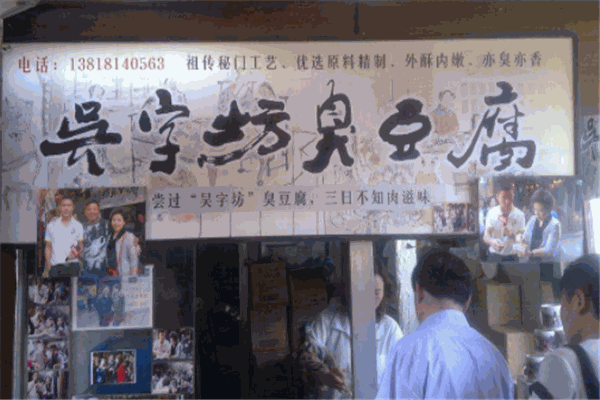 电话：13818140563 祖传秘门工艺、优选原料精制、外酥内嫩、亦臭亦香
吴字坊臭豆腐
尝过“吴字坊”臭豆腐，三日不知肉滋味